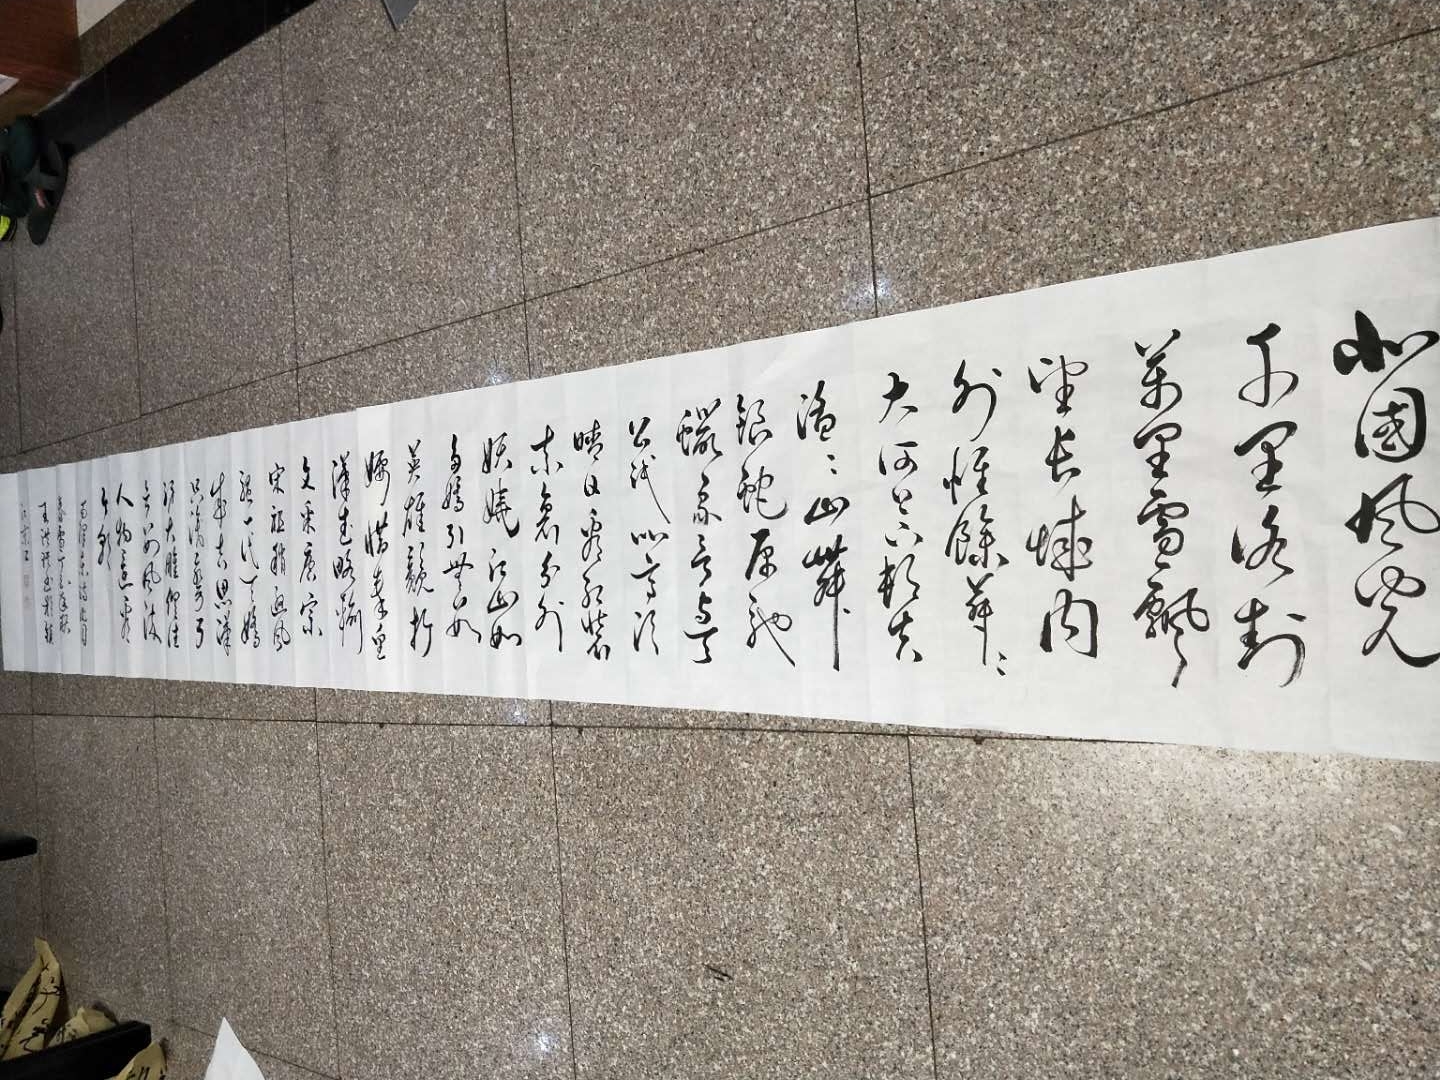 北國風光
千里冰封
萬里雪飄
望長城內
外惟餘莽〻
大河上下頓失
滔〻山舞
銀蛇原馳
蠟象欲與天
公試比高須
晴日看紅裝
素裹分外
妖嬈江山如
多嬌引無數
英雄競折
腰惜秦皇
漢武略輸
文采唐宗
宋祖稍遜風
騷一代天驕
成吉思漢
只識彎弓
射大雕俱往
矣數風流
人物還看
今朝
毛澤東詩沁園
春雪